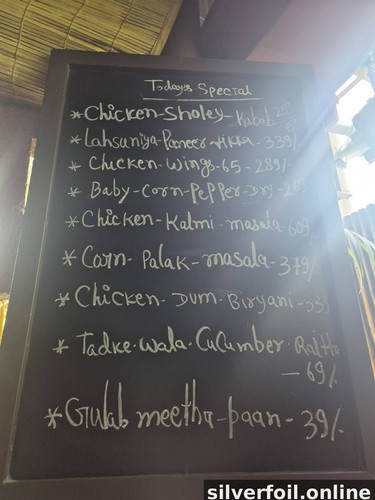 Today's Special
* Chicken-Sholey-Kabab
* Lahsuniya-Paneer-tikka-339/-
* Chicken-Wings-65-289/-
* Baby-Corn-Pepper-Dry-
* Chicken-Kalmi-masala-609
* Corn-Palak-masala-379/-
* Chicken-Dum-Biryani-
* Tadke-Wala-Cucumber-Raitha
-69/-
* Gulab meetha-paan-39/-
silverfoil.online